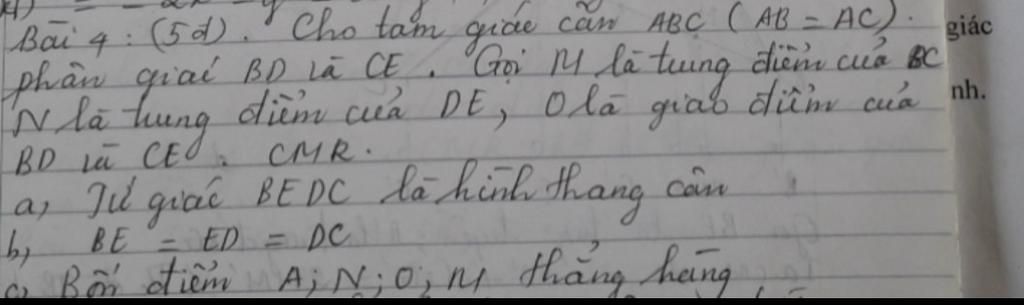 Bài 4 : (5đ). Cho tam giác cân ABC (AB = AC).
giác
phân giác BD và CE. Gọi M là trung điểm của BC
N là trung điểm của DE, O là giao điểm của
nh.
BD và CE. CMR.
a, Tứ giác BEDC là hình thang cân
b, BE = ED = DC
c, Bốn điểm A; N; O; M thẳng hàng